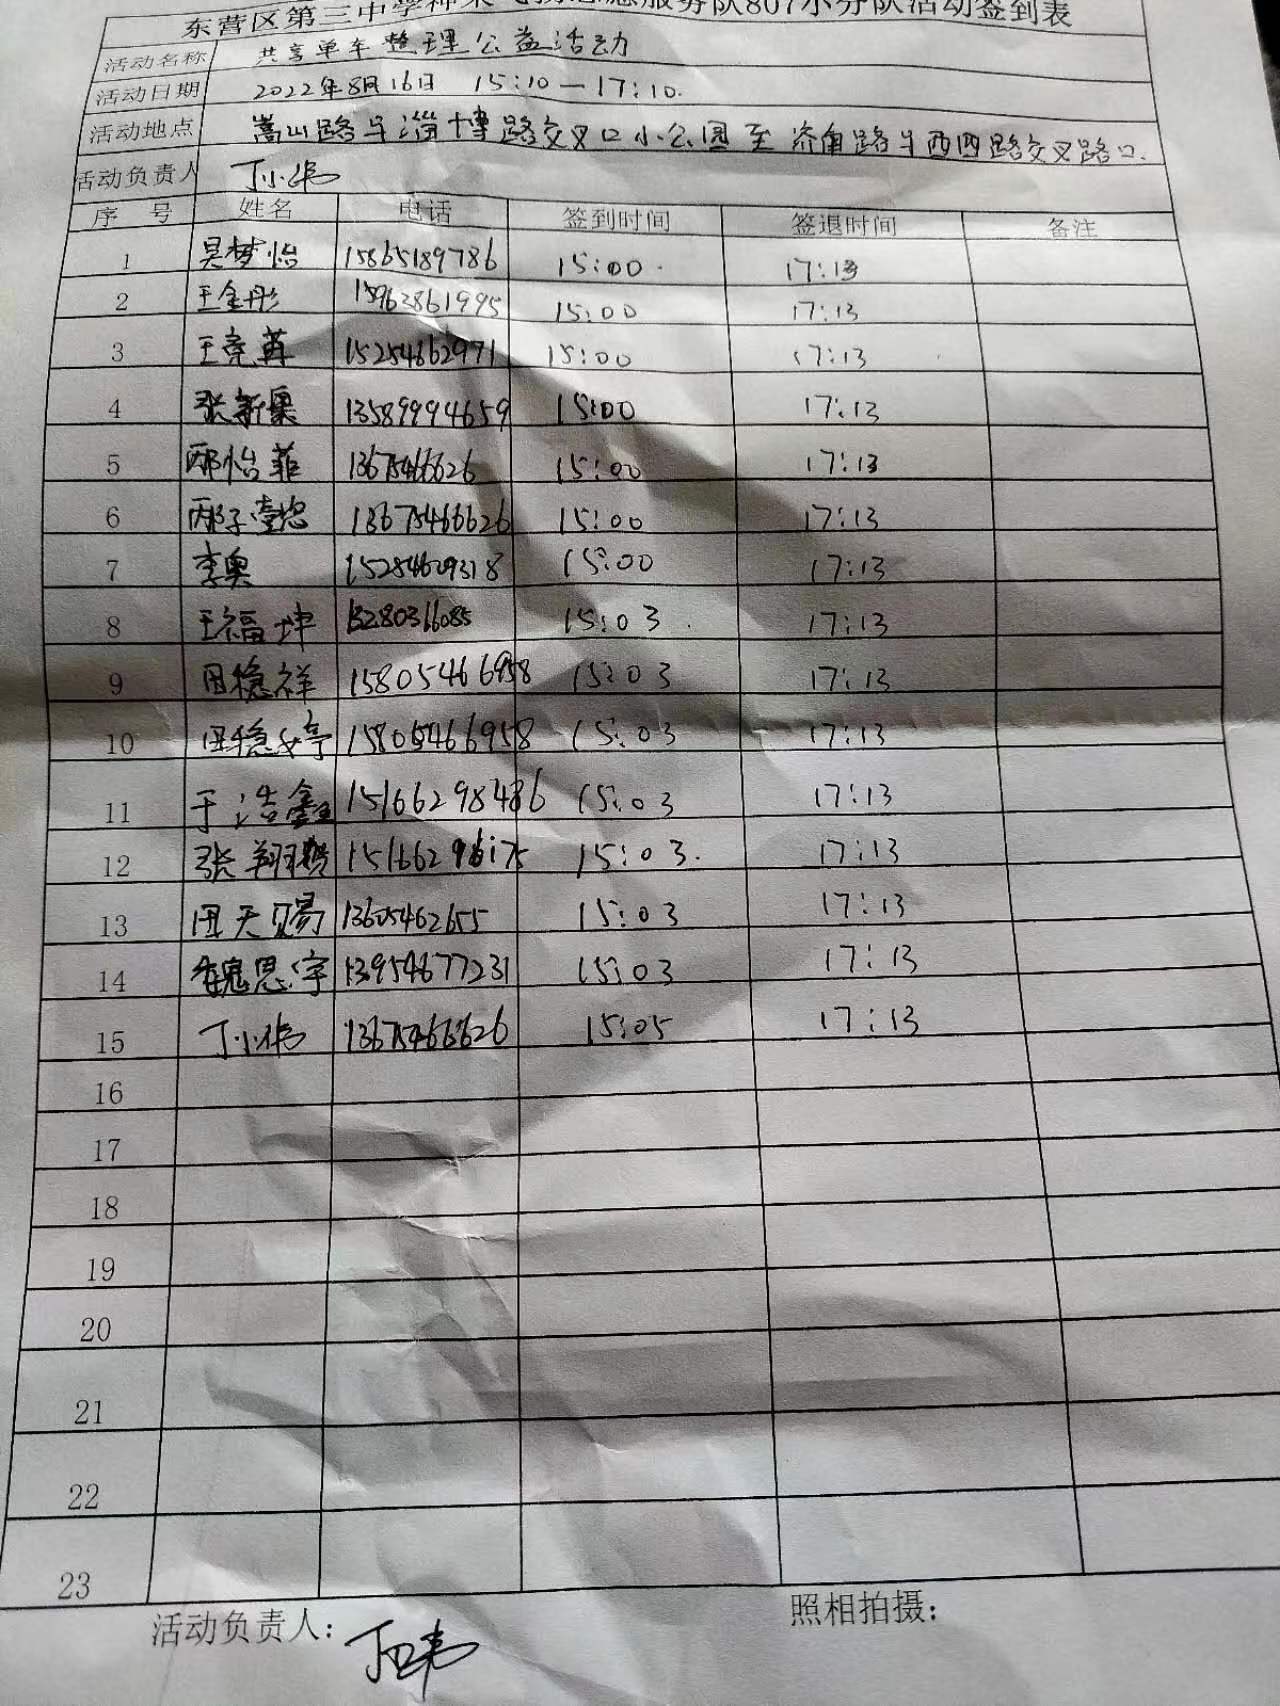 东营区第三中学神 志愿服务队807小分队活动签到表
活动名称 共享单车整理公益活动
活动日期 2022年8月16日 15:10—17:10.
活动地点 嵩山路与淄博路交叉口小公园至济南路与西四路交叉路口.
活动负责人 丁小伟
序 号 姓名 电话 签到时间 签退时间 备注
1 吴梦怡 15865189786 15:00 17:13
2 王金彤 15962861995 15:00 17:13
3 王尧 15254662971 15:00 17:13
4 张新果 13589994659 15:00 17:13
5 邴怡菲 1367546626 15:00 17:13
6 邴子 13675466626 15:00 17:13
7 李奥 15254609318 15:00 17:13
8 王福坤 13280316085 15:03 17:13
9 田稳祥 15805466958 15:03 17:13
10 田稳婷 15805466958 15:03 17:13
11 于浩鑫 15166298486 15:03 17:13
12 张翔 15:03. 17:13
13 田天赐 13605462655 15:03 17:13
14 魏思宇 13954677231 15:03 17:13
15 丁小伟 13675466626 15:05 17:13
16
17
18
19
20
21
22
23
活动负责人: 丁小伟 照相拍摄: